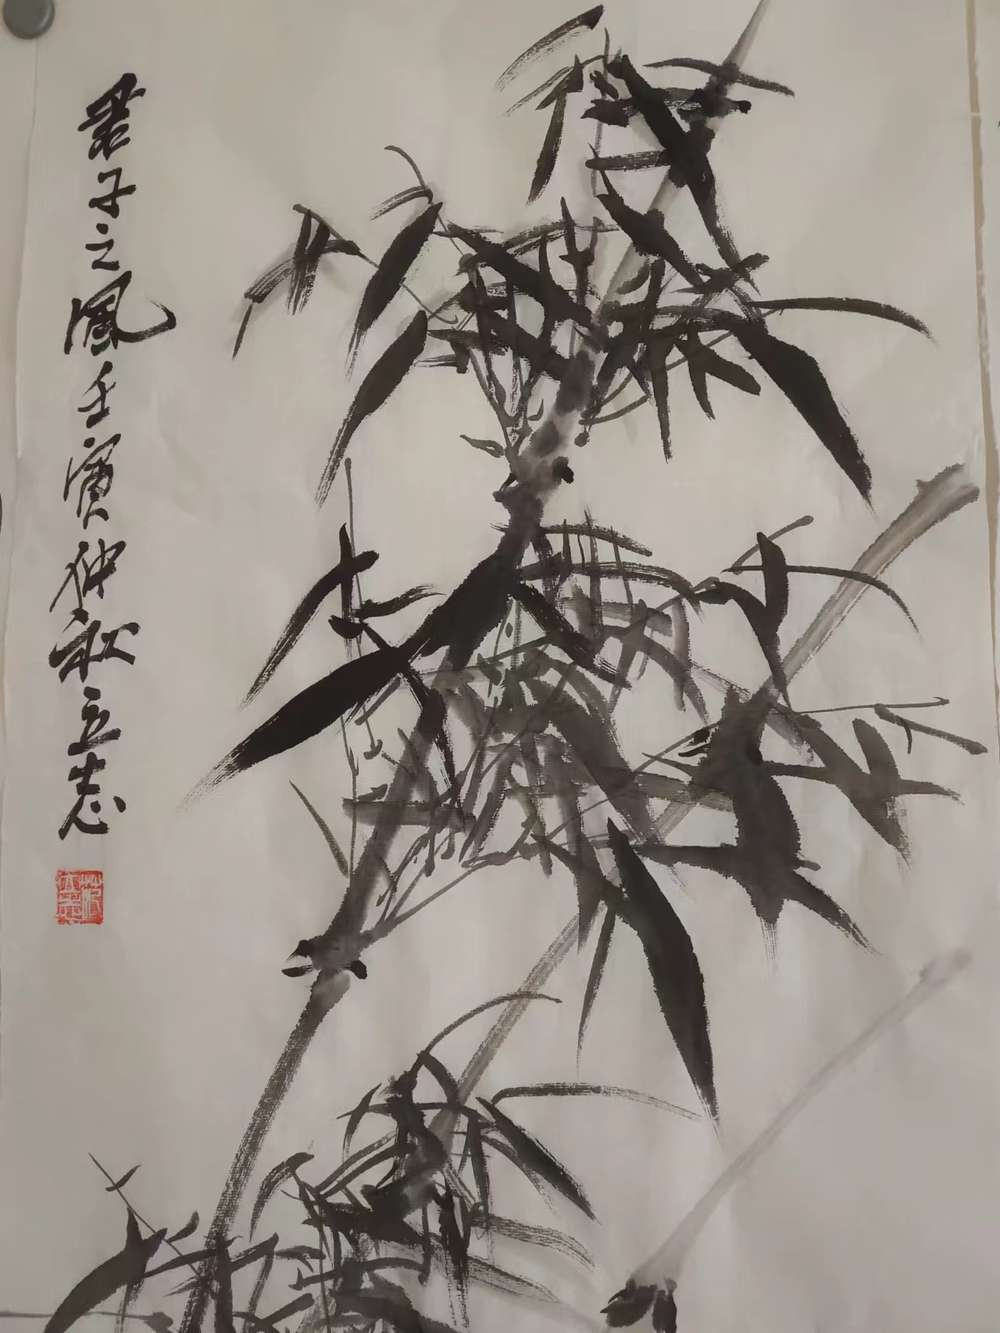 君子之風壬寅仲秋立志